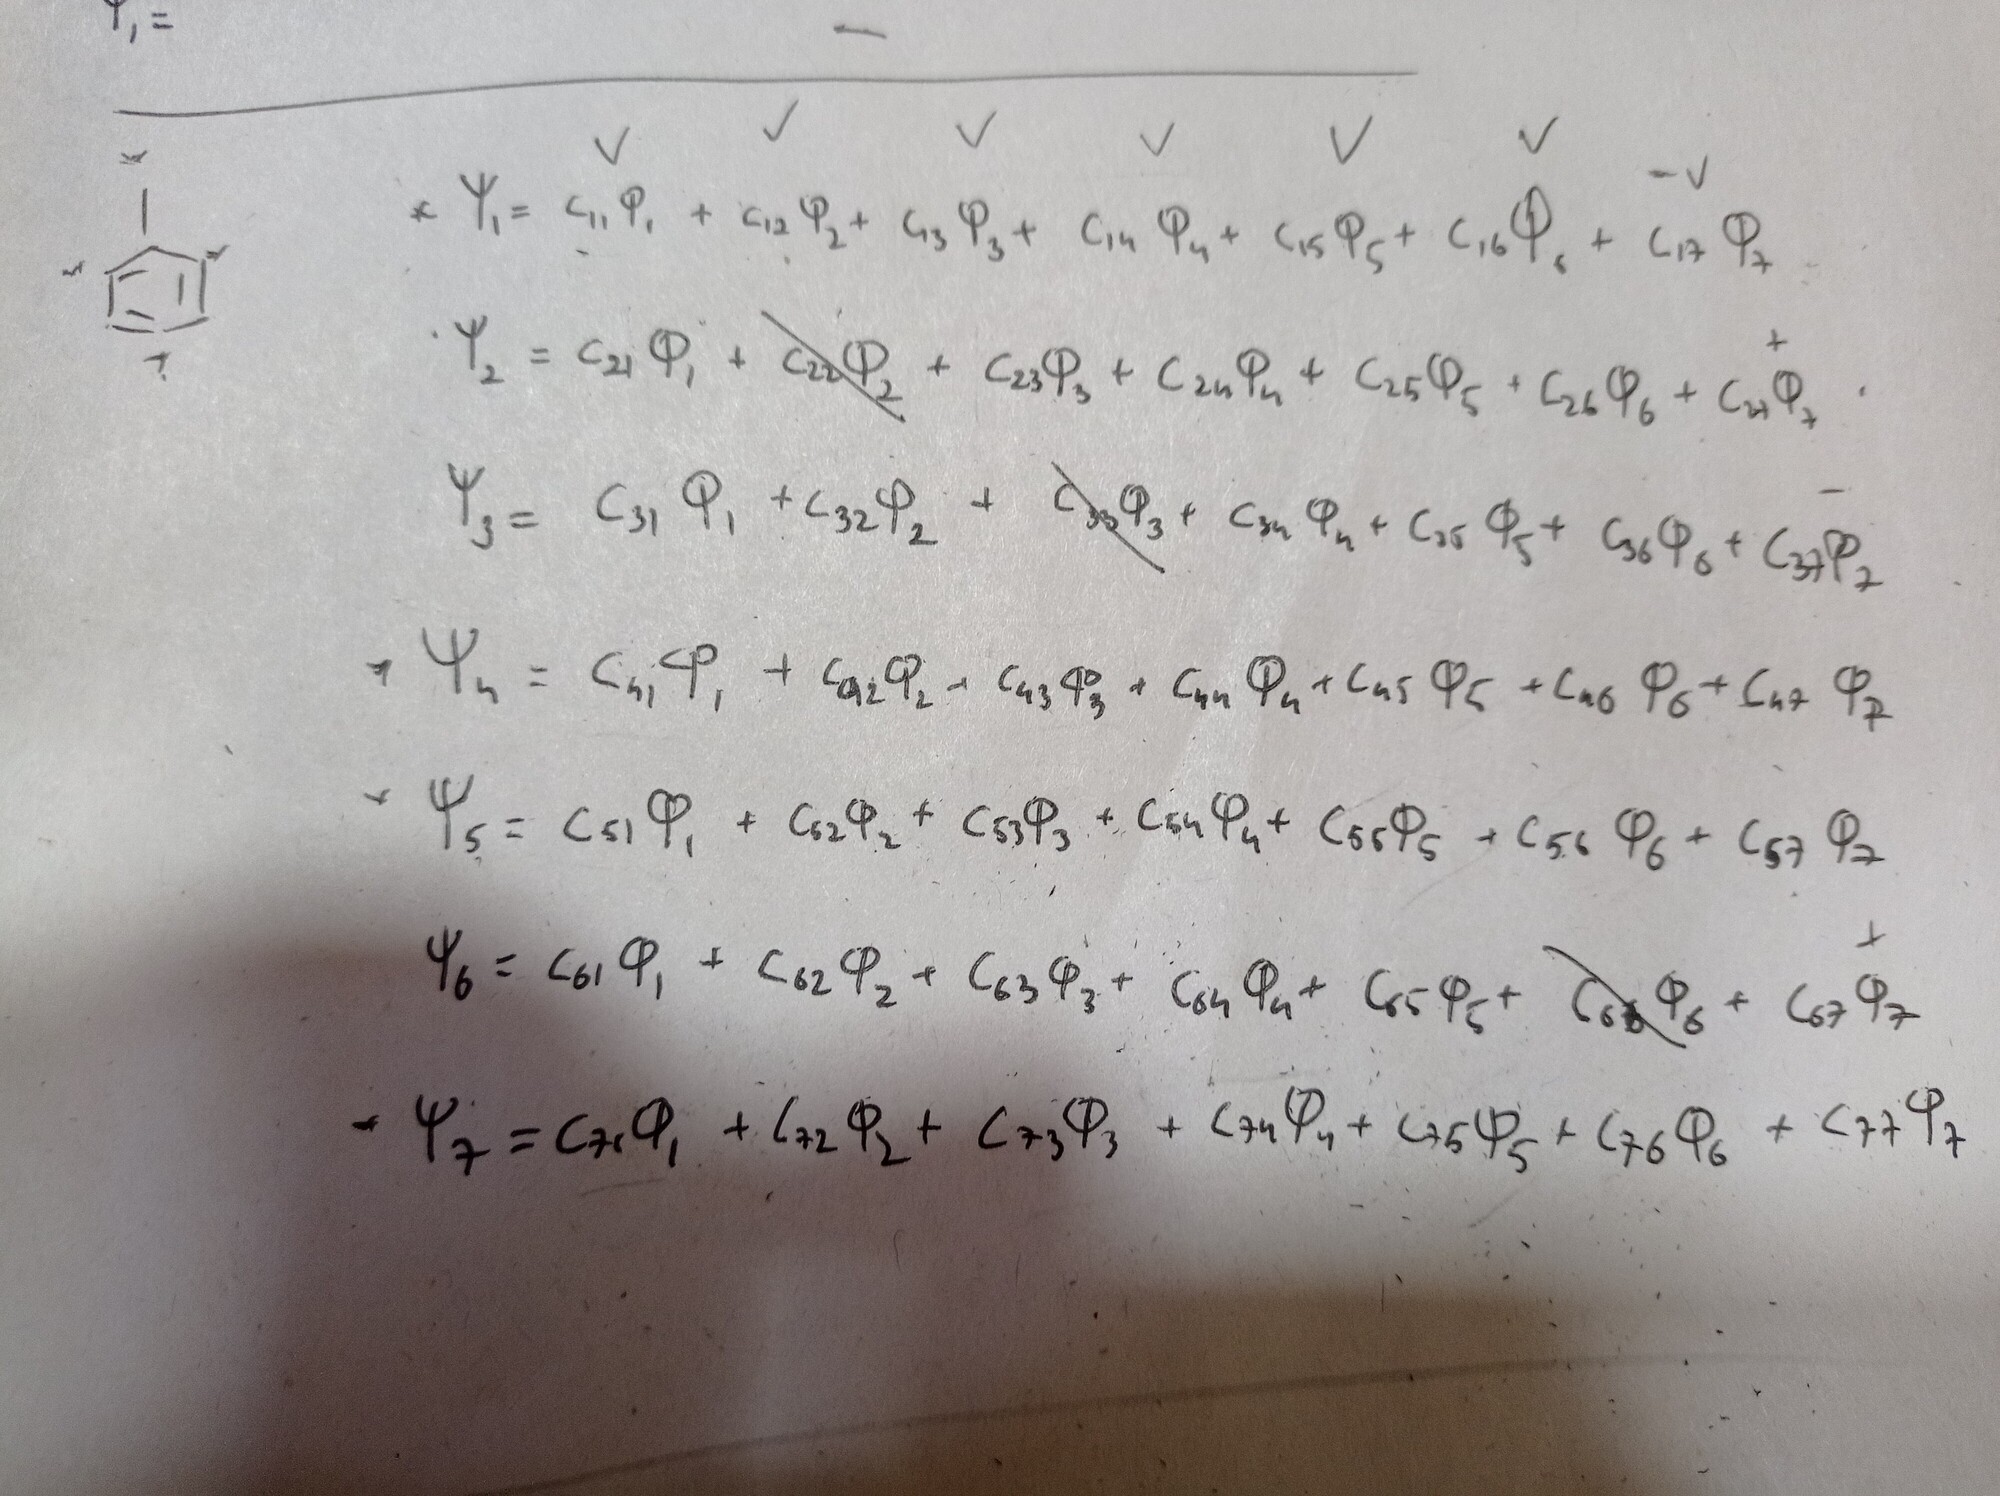 Ψ₁ =
✓ ✓ ✓ ✓ ✓ ✓ -✓
* Ψ₁ = C₁₁φ₁ + C₁₂φ₂ + C₁₃φ₃ + C₁₄φ₄ + C₁₅φ₅ + C₁₆φ₆ + C₁₇φ₇
Ψ₂ = C₂₁φ₁ + C₂₂φ₂ + C₂₃φ₃ + C₂₄φ₄ + C₂₅φ₅ + C₂₆φ₆ + C₂₇φ₇
Ψ₃ = C₃₁φ₁ + C₃₂φ₂ + C₃₃φ₃ + C₃₄φ₄ + C₃₅φ₅ + C₃₆φ₆ + C₃₇φ₇
* Ψ₄ = C₄₁φ₁ + C₄₂φ₂ + C₄₃φ₃ + C₄₄φ₄ + C₄₅φ₅ + C₄₆φ₆ + C₄₇φ₇
* Ψ₅ = C₅₁φ₁ + C₅₂φ₂ + C₅₃φ₃ + C₅₄φ₄ + C₅₅φ₅ + C₅₆φ₆ + C₅₇φ₇
Ψ₆ = C₆₁φ₁ + C₆₂φ₂ + C₆₃φ₃ + C₆₄φ₄ + C₆₅φ₅ + C₆₆φ₆ + C₆₇φ₇
* Ψ₇ = C₇₁φ₁ + C₇₂φ₂ + C₇₃φ₃ + C₇₄φ₄ + C₇₅φ₅ + C₇₆φ₆ + C₇₇φ₇